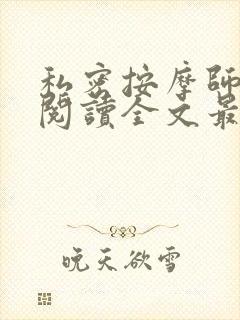 私密按摩師
閱讀全文最
晚天欲雪